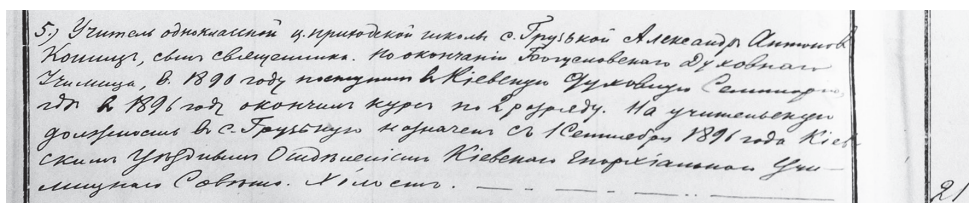 5.) Учитель одноклассной ц.приходской школы с. Грузской Александръ Антоновъ
Кошицъ, сынъ священника. По окончаніи Богуславскаго Духовнаго
Училища, въ 1890 году поступилъ въ Кіевскую Духовную Семинарію,
гдѣ въ 1896 году окончилъ курсъ по 2 разряду. На учительскую
должность въ с. Грузскую назначенъ съ 1 Сентября 1896 года Кіев-
скимъ Уѣзднымъ Отдѣленіемъ Кіевскаго Епархіальнаго Учи-
лищнаго Совѣта. Холостъ.
21